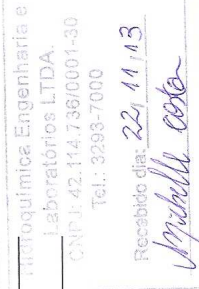 Hidroquímica Engenharia e
Laboratórios LTDA.
CNPJ: 42.114.736/0001-30
Tel.: 3293-7000
Recebido dia: 22/11/13
Michelle Costa